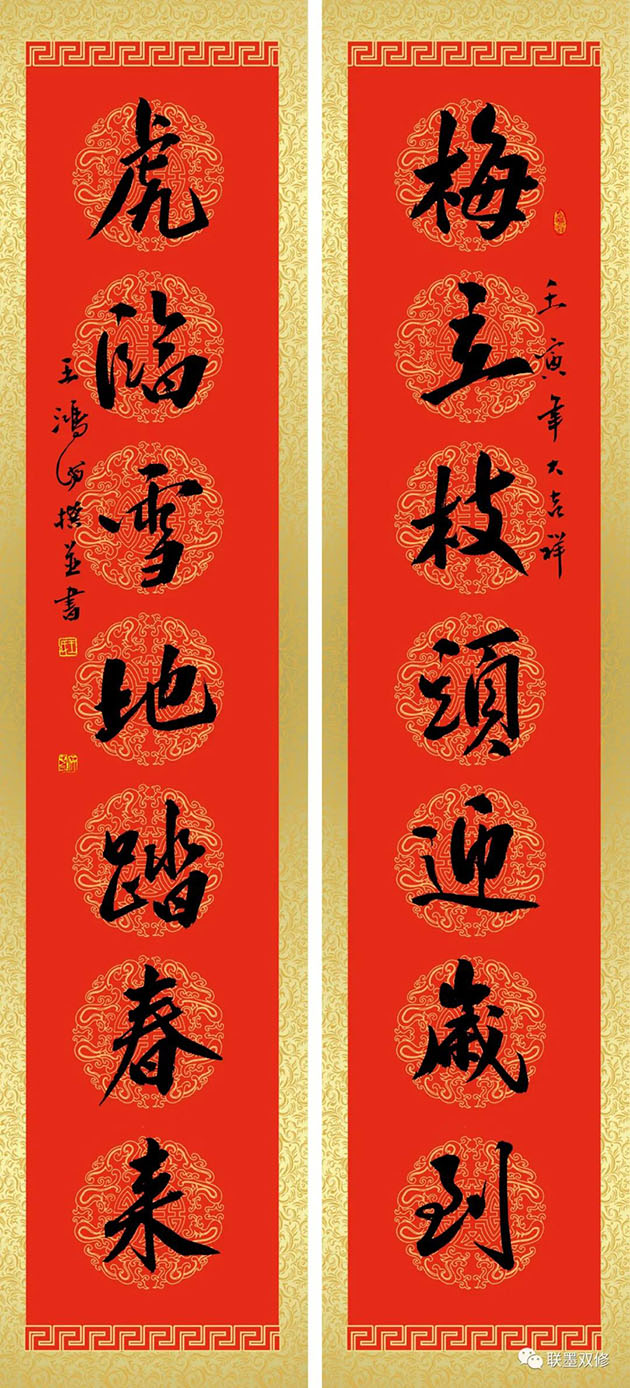 梅立枝頭迎歲到
壬寅年大吉祥
虎臨雪地踏春来
王鴻
撰並書
联墨双修